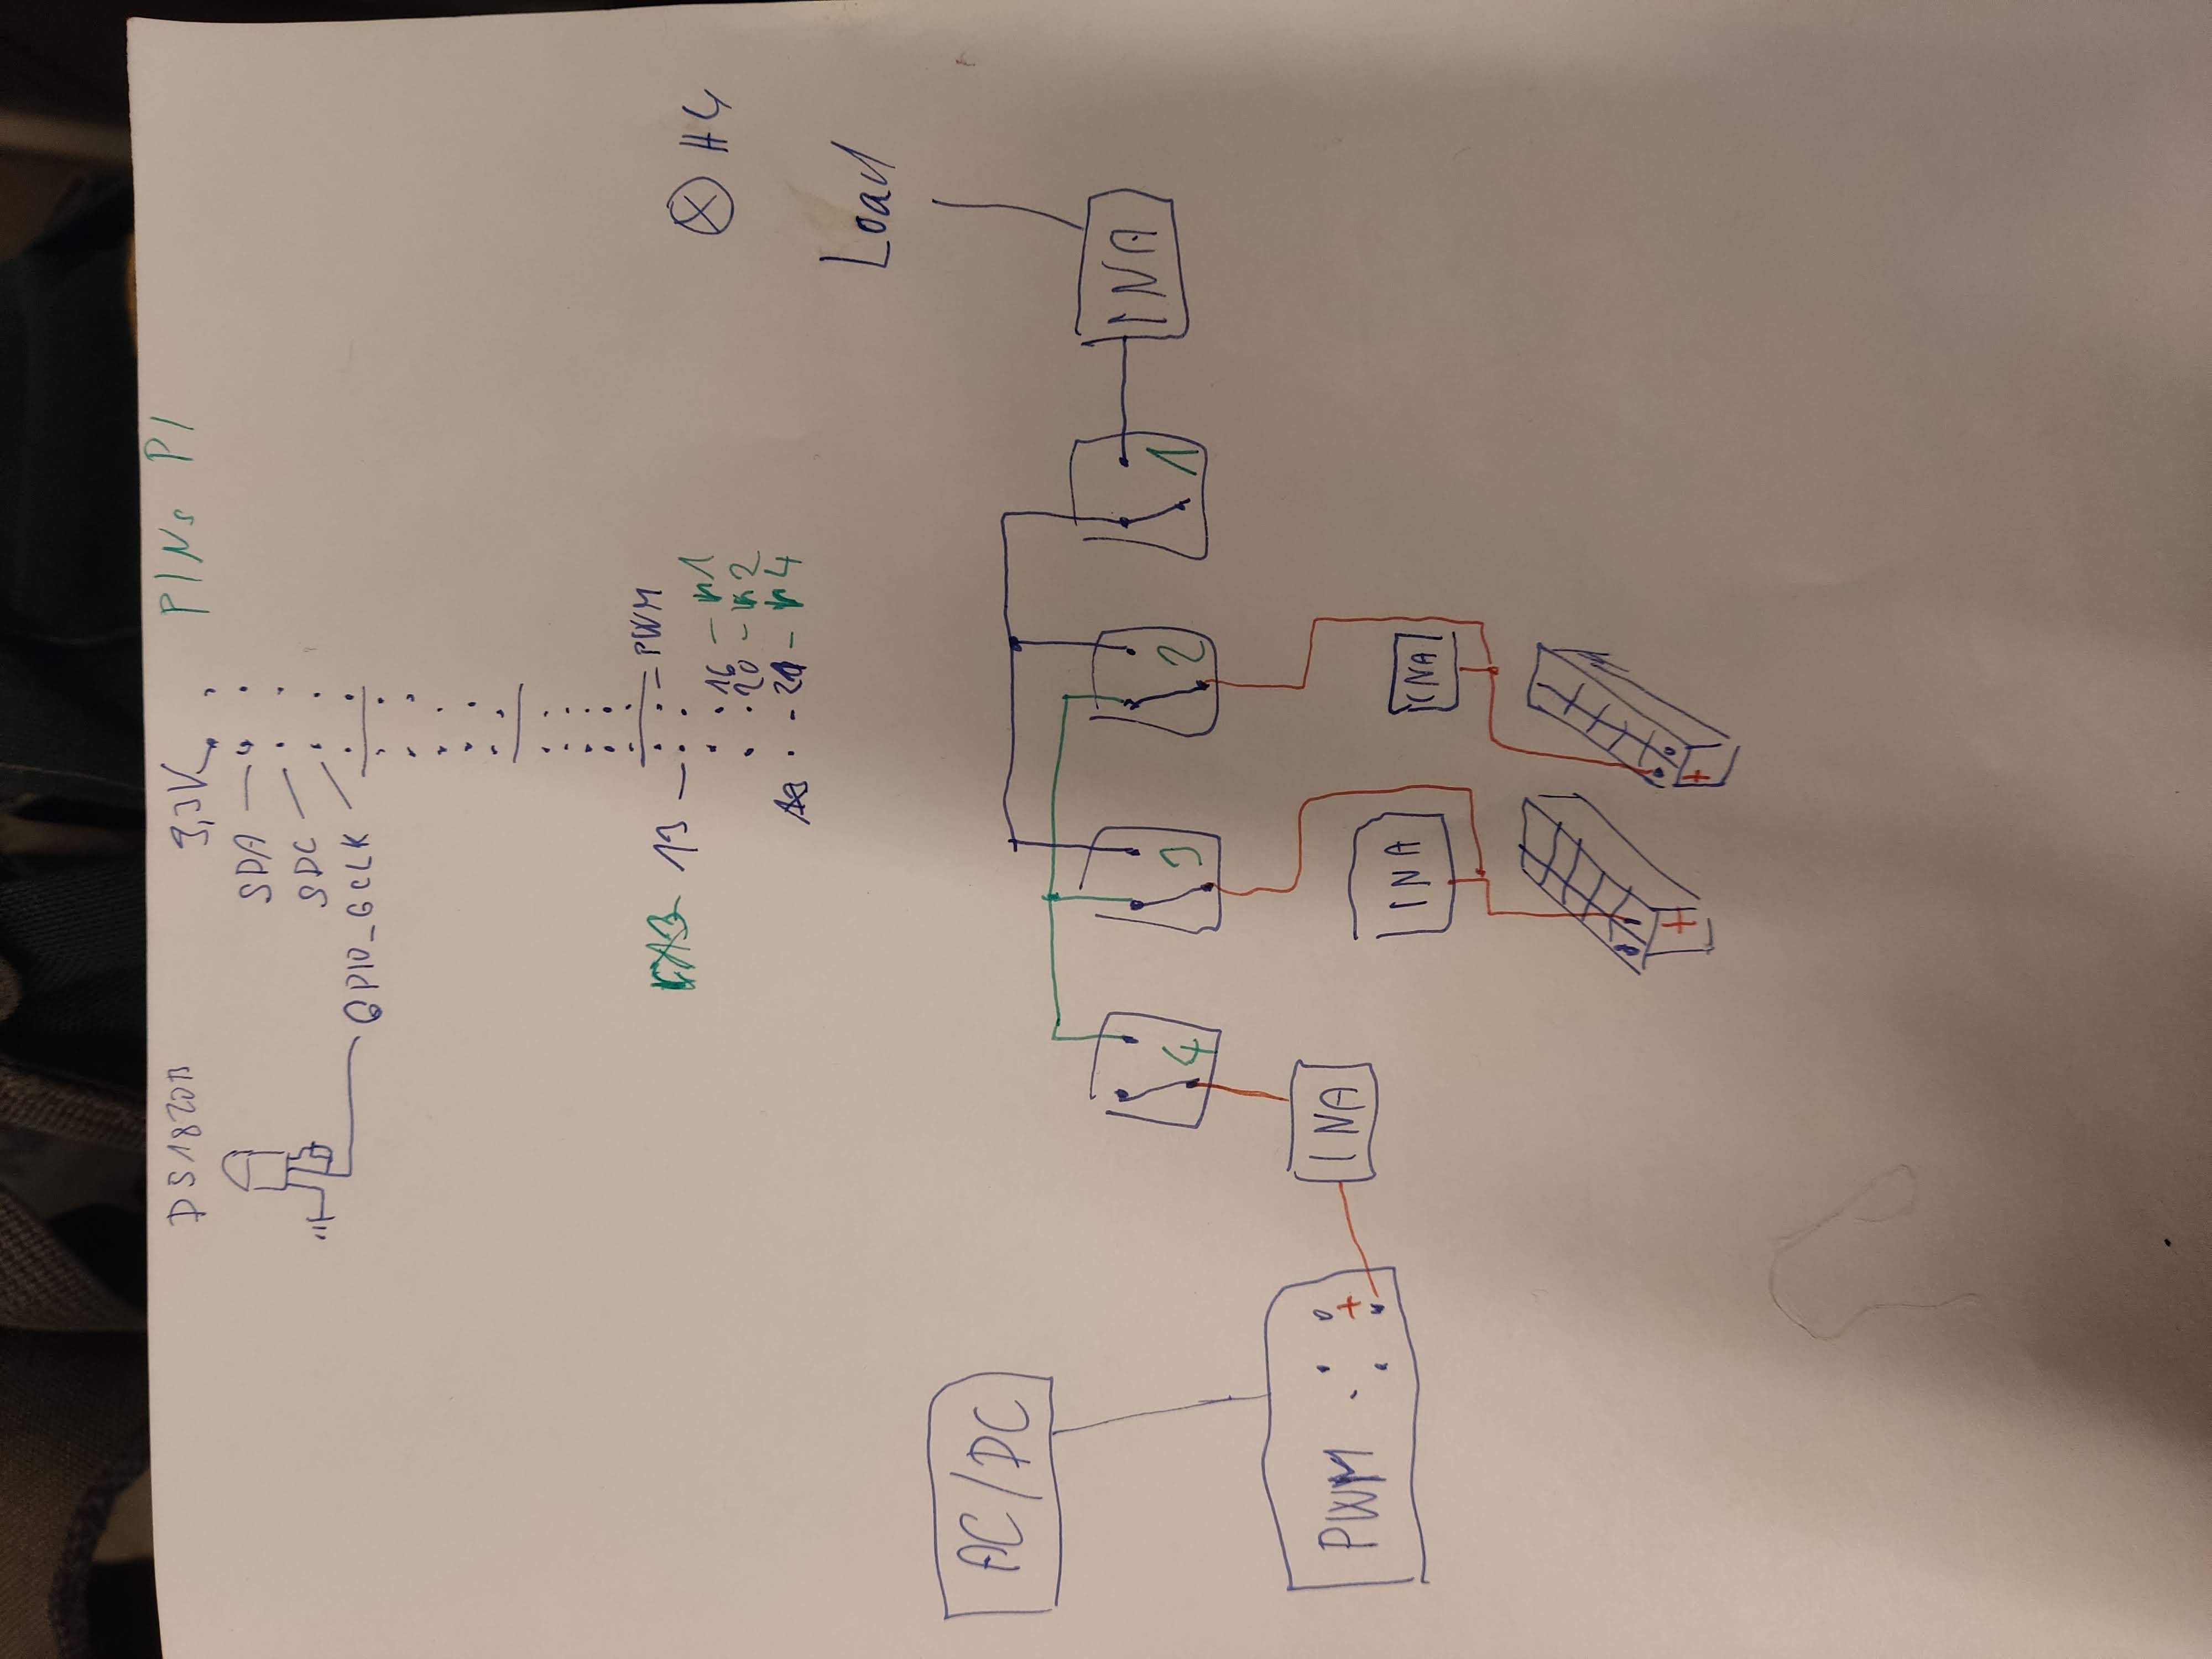 DS1820B
3,3V
PINs PI
SDA
SDC
GPIO_GCLK
PWM
13
16 - r1
20 - r2
21 - r4
H4
Load
AC/DC
4
3
2
1
INA
PWM
+
INA
INA
INA
+
+